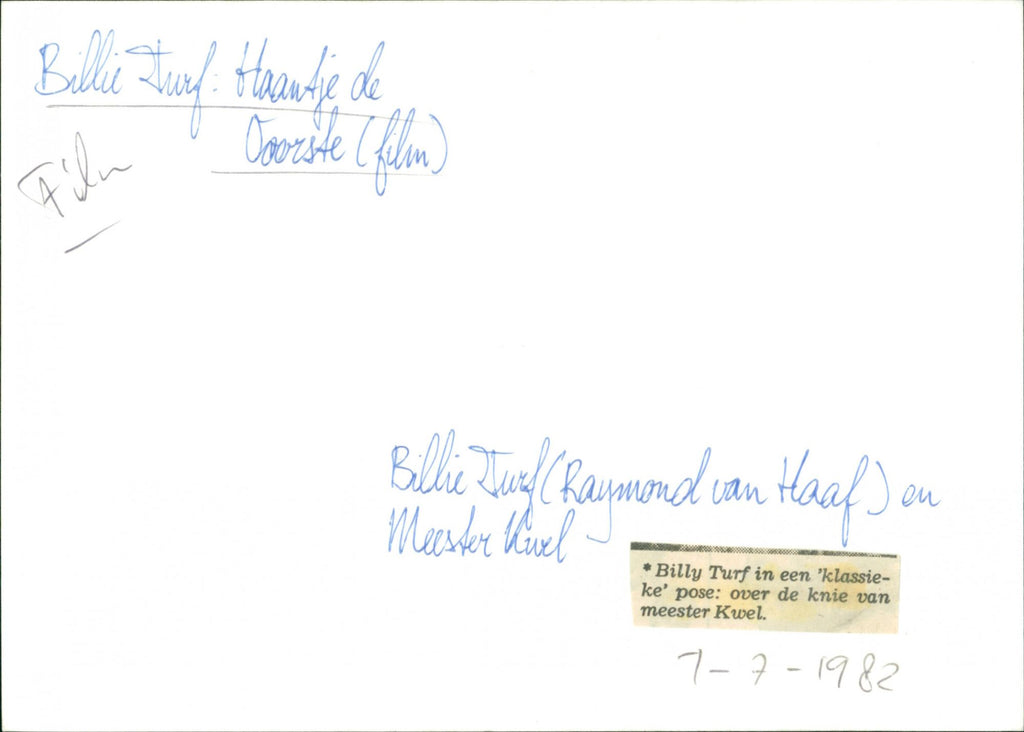 Billie Turf: Haantje de
Voorste (film)
Film
Billie Turf (Raymond van Haaf) en
Meester Kwel
* Billy Turf in een 'klassie-
ke' pose: over de knie van
meester Kwel.
7-7-1982